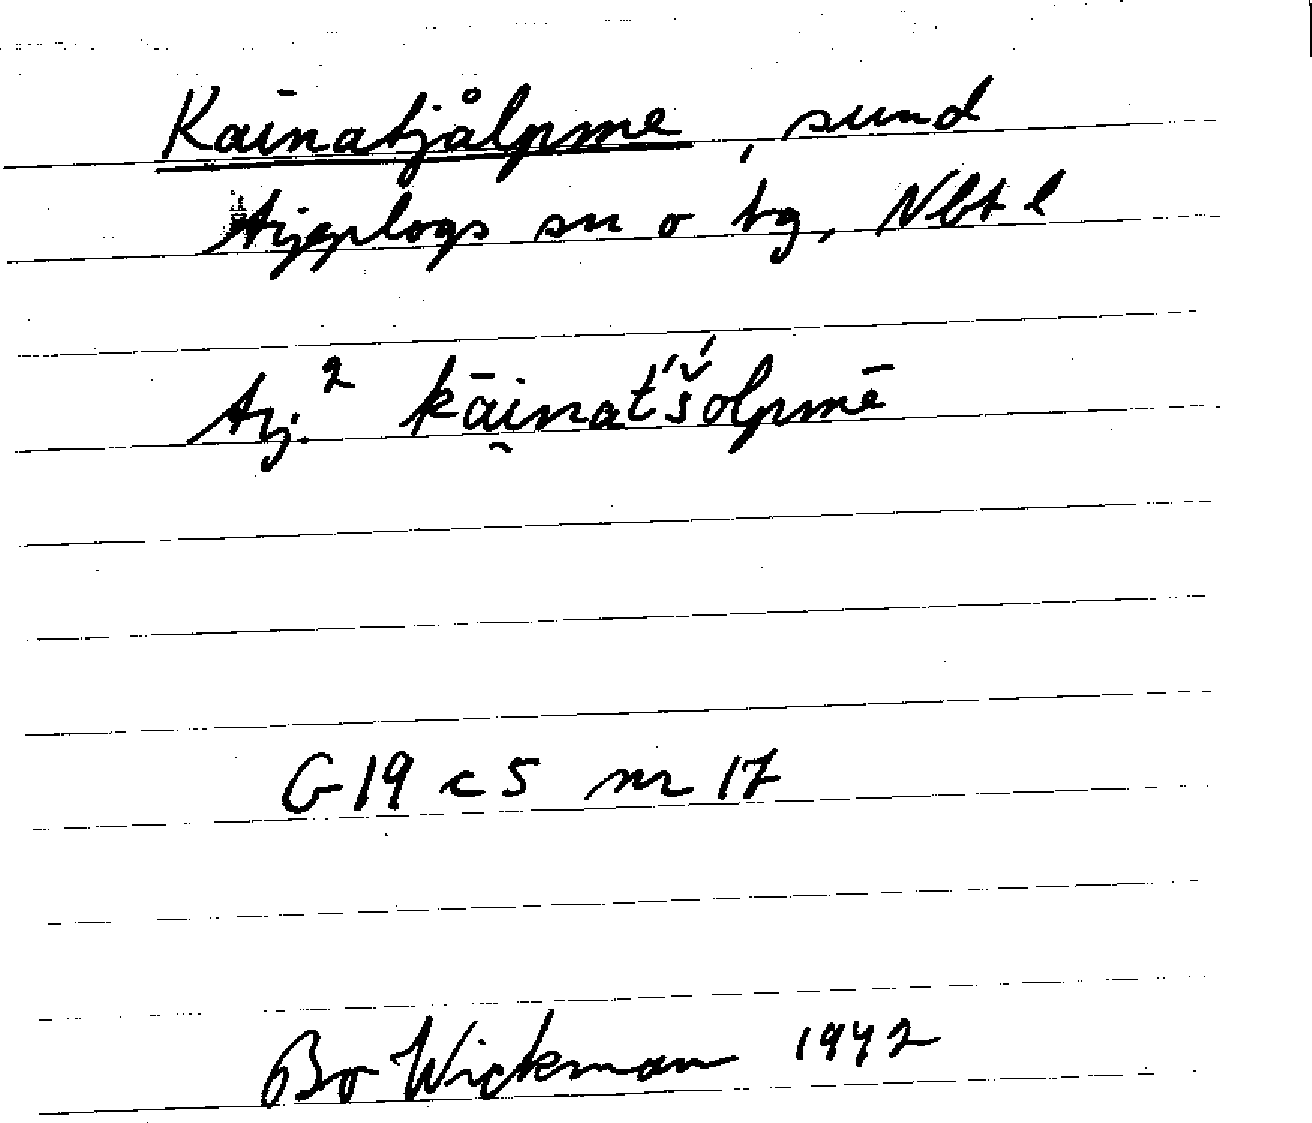 Kāinatjålpme, sund
Arjeplogs sn o tg, Nbt l
Arj.² kā̰inat́š́olpmē
G19 c 5 nr 17
Bo Wickman 1942